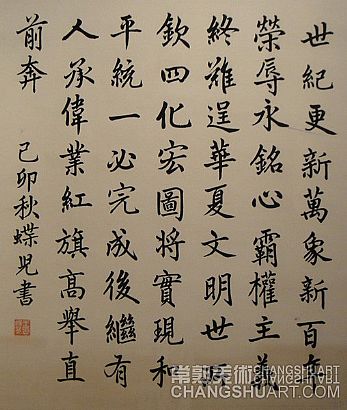 世紀更新萬象新百年
榮辱永銘心霸權主義
終難逞華夏文明世所
欽四化宏圖將實現和
平統一必完成後繼有
人承偉業紅旗高舉直
前奔
己卯秋蝶兒書
常熟美術
CHANGSHUART.COM